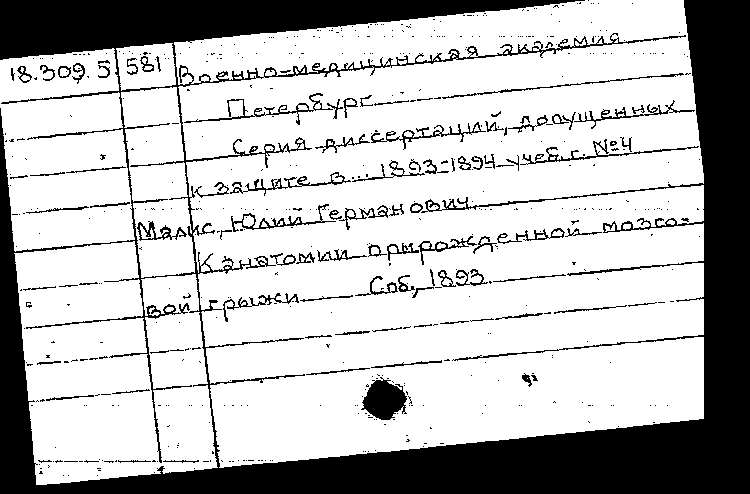 18.309.5 581 Военно-медицинская академия
Петербург
Серия диссертаций, допущенных
к защите в... 1893-1894 учеб. г. №4
Малис, Юлий Германович
К анатомии прырожденной мозго-
вой грыжи Спб., 1893